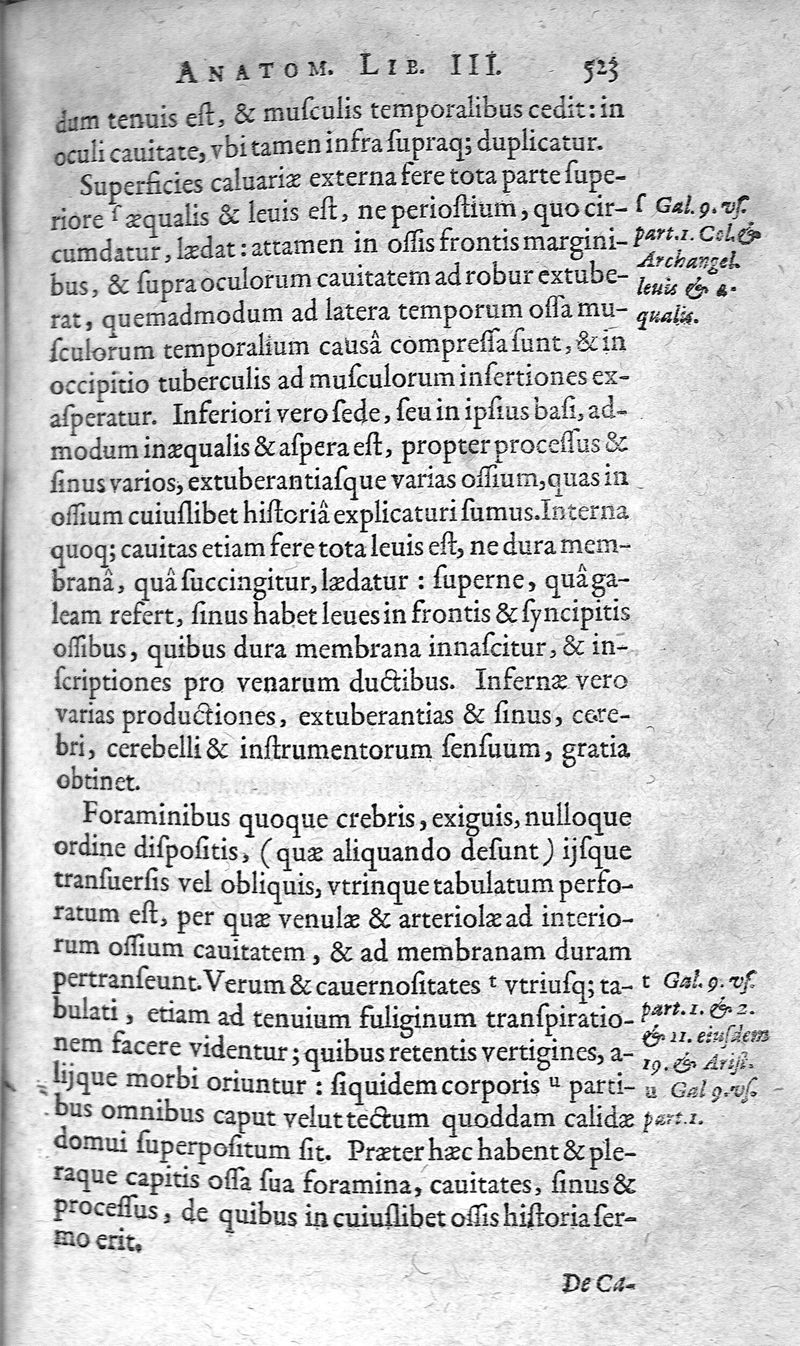 ANATOM. LIB. III. 523
dum tenuis eſt, & muſculis temporalibus cedit: in
oculi cauitate, vbi tamen infra ſupraq; duplicatur.
Superficies caluariæ externa fere tota parte ſupe-
riore ſ æqualis & leuis eſt, ne perioſtium, quo cir-
cumdatur, lædat: attamen in oſſis frontis margini-
bus, & ſupra oculorum cauitatem ad robur extube-
rat, quemadmodum ad latera temporum oſſa mu-
ſculorum temporalium causâ compreſſa ſunt, & in
occipitio tuberculis ad muſculorum inſertiones ex-
aſperatur. Inferiori vero ſede, ſeu in ipſius baſi, ad-
modum inæqualis & aſpera eſt, propter proceſſus &
ſinus varios, extuberantiaſque varias oſſium, quas in
oſſium cuiuſlibet hiſtoriâ explicaturi ſumus. Interna
quoq; cauitas etiam fere tota leuis eſt, ne dura mem-
branâ, quâ ſuccingitur, lædatur : ſuperne, quâ ga-
leam refert, ſinus habet leues in frontis & ſyncipitis
oſſibus, quibus dura membrana innaſcitur, & in-
ſcriptiones pro venarum ductibus. Infernæ vero
varias productiones, extuberantias & ſinus, cere-
bri, cerebelli & inſtrumentorum ſenſuum, gratia
obtinet.
Foraminibus quoque crebris, exiguis, nulloque
ordine diſpoſitis, (quæ aliquando deſunt) ijſque
tranſuerſis vel obliquis, vtrinque tabulatum perfo-
ratum eſt, per quæ venulæ & arteriolæ ad interio-
rum oſſium cauitatem, & ad membranam duram
pertranſeunt. Verum & cauernoſitates t vtriuſq; ta-
bulati, etiam ad tenuium fuliginum tranſpiratio-
nem facere videntur; quibus retentis vertigines, a-
lijque morbi oriuntur : ſiquidem corporis u parti-
bus omnibus caput velut tectum quoddam calidæ
domui ſuperpoſitum ſit. Præter hæc habent & ple-
raque capitis oſſa ſua foramina, cauitates, ſinus &
proceſſus, de quibus in cuiuſlibet oſſis hiſtoria ſer-
mo erit.
De Ca-
ſ Gal. 9. vſ.
part. 1. Col. &
Archangel.
leuis & æ-
qualis.
t Gal. 9. vſ.
part. 1. & 2.
& 11. eiuſdem
19. & Ariſt.
u Gal 9. vſ.
part. 1.